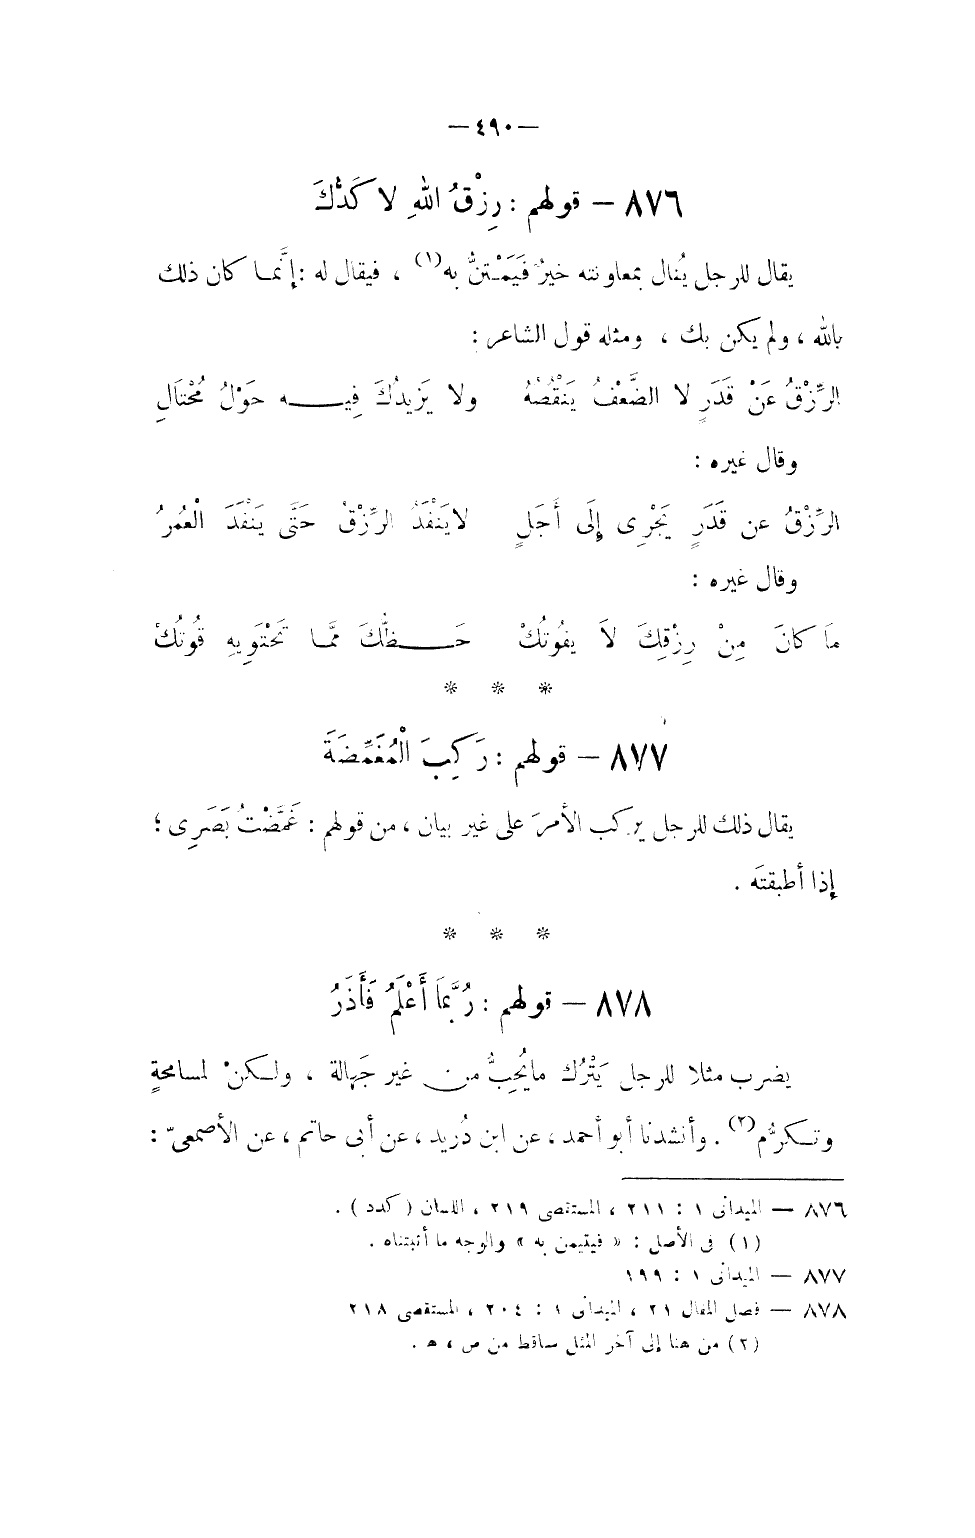 — ٤٩٠ —
٨٧٦ — قولهم : رِزْقُ اللهِ لا كَدُّكَ
يقال للرجل يُنال بمعاونته خيرٌ فَيَمْتَنُّ به (١) ، فيقال له : إنَّما كان ذلك
بالله ، ولم يكن بك ، ومثله قول الشاعر :
الرِّزْقُ عَنْ قَدَرٍ لا الضَّعْفُ يَنْقُصُهُ ولا يَزِيدُكَ فِيهِ حَوْلُ مُحْتَالِ
وقال غيره :
الرِّزْقُ عن قَدَرٍ يَجْرِى إِلَى أَجَلٍ لايَنْفَدُ الرِّزْقُ حَتَّى يَنْفَدَ الْعُمرُ
وقال غيره :
مَا كانَ مِنْ رِزْقِكَ لاَ يفُوتُكْ حَظُّكَ مَّا تَحْتَوِيهِ قُوتُكْ
* * *
٨٧٧ — قولهم : رَكِبَ الْمُغَمِّضَةَ
يقال ذلك للرجل يركب الأمرَ على غير بيان ، من قولهم : غَمَّضْتُ بَصَرِى ؛
إذا أطبقتَه .
* * *
٨٧٨ — قولهم : رُبَّمَا أَعْلَمُ فَأَذَرُ
يضرب مثلا للرجل يَتْرُك مايُحِبُّ من غير جَهالة ، ولكنْ لمسامحةٍ
وتكرُّم (٢) . وأنشدنا أبو أحمد ، عن ابن دُريد ، عن أبى حاتم ، عن الأصمعىّ :
٨٧٦ — الميدانى ١ : ٢١١ ، المستقصى ٢١٩ ، اللسان ( كدد ) .
(١) فى الأصل : « فيتيمن به » والوجه ما أثبتناه .
٨٧٧ — الميدانى ١ : ١٩٩
٨٧٨ — فصل المقال ٢١ ، الميدانى ١ : ٢٠٤ ، المستقصى ٢١٨
(٢) من هنا إلى آخر المثل ساقط من ص ، ھ .